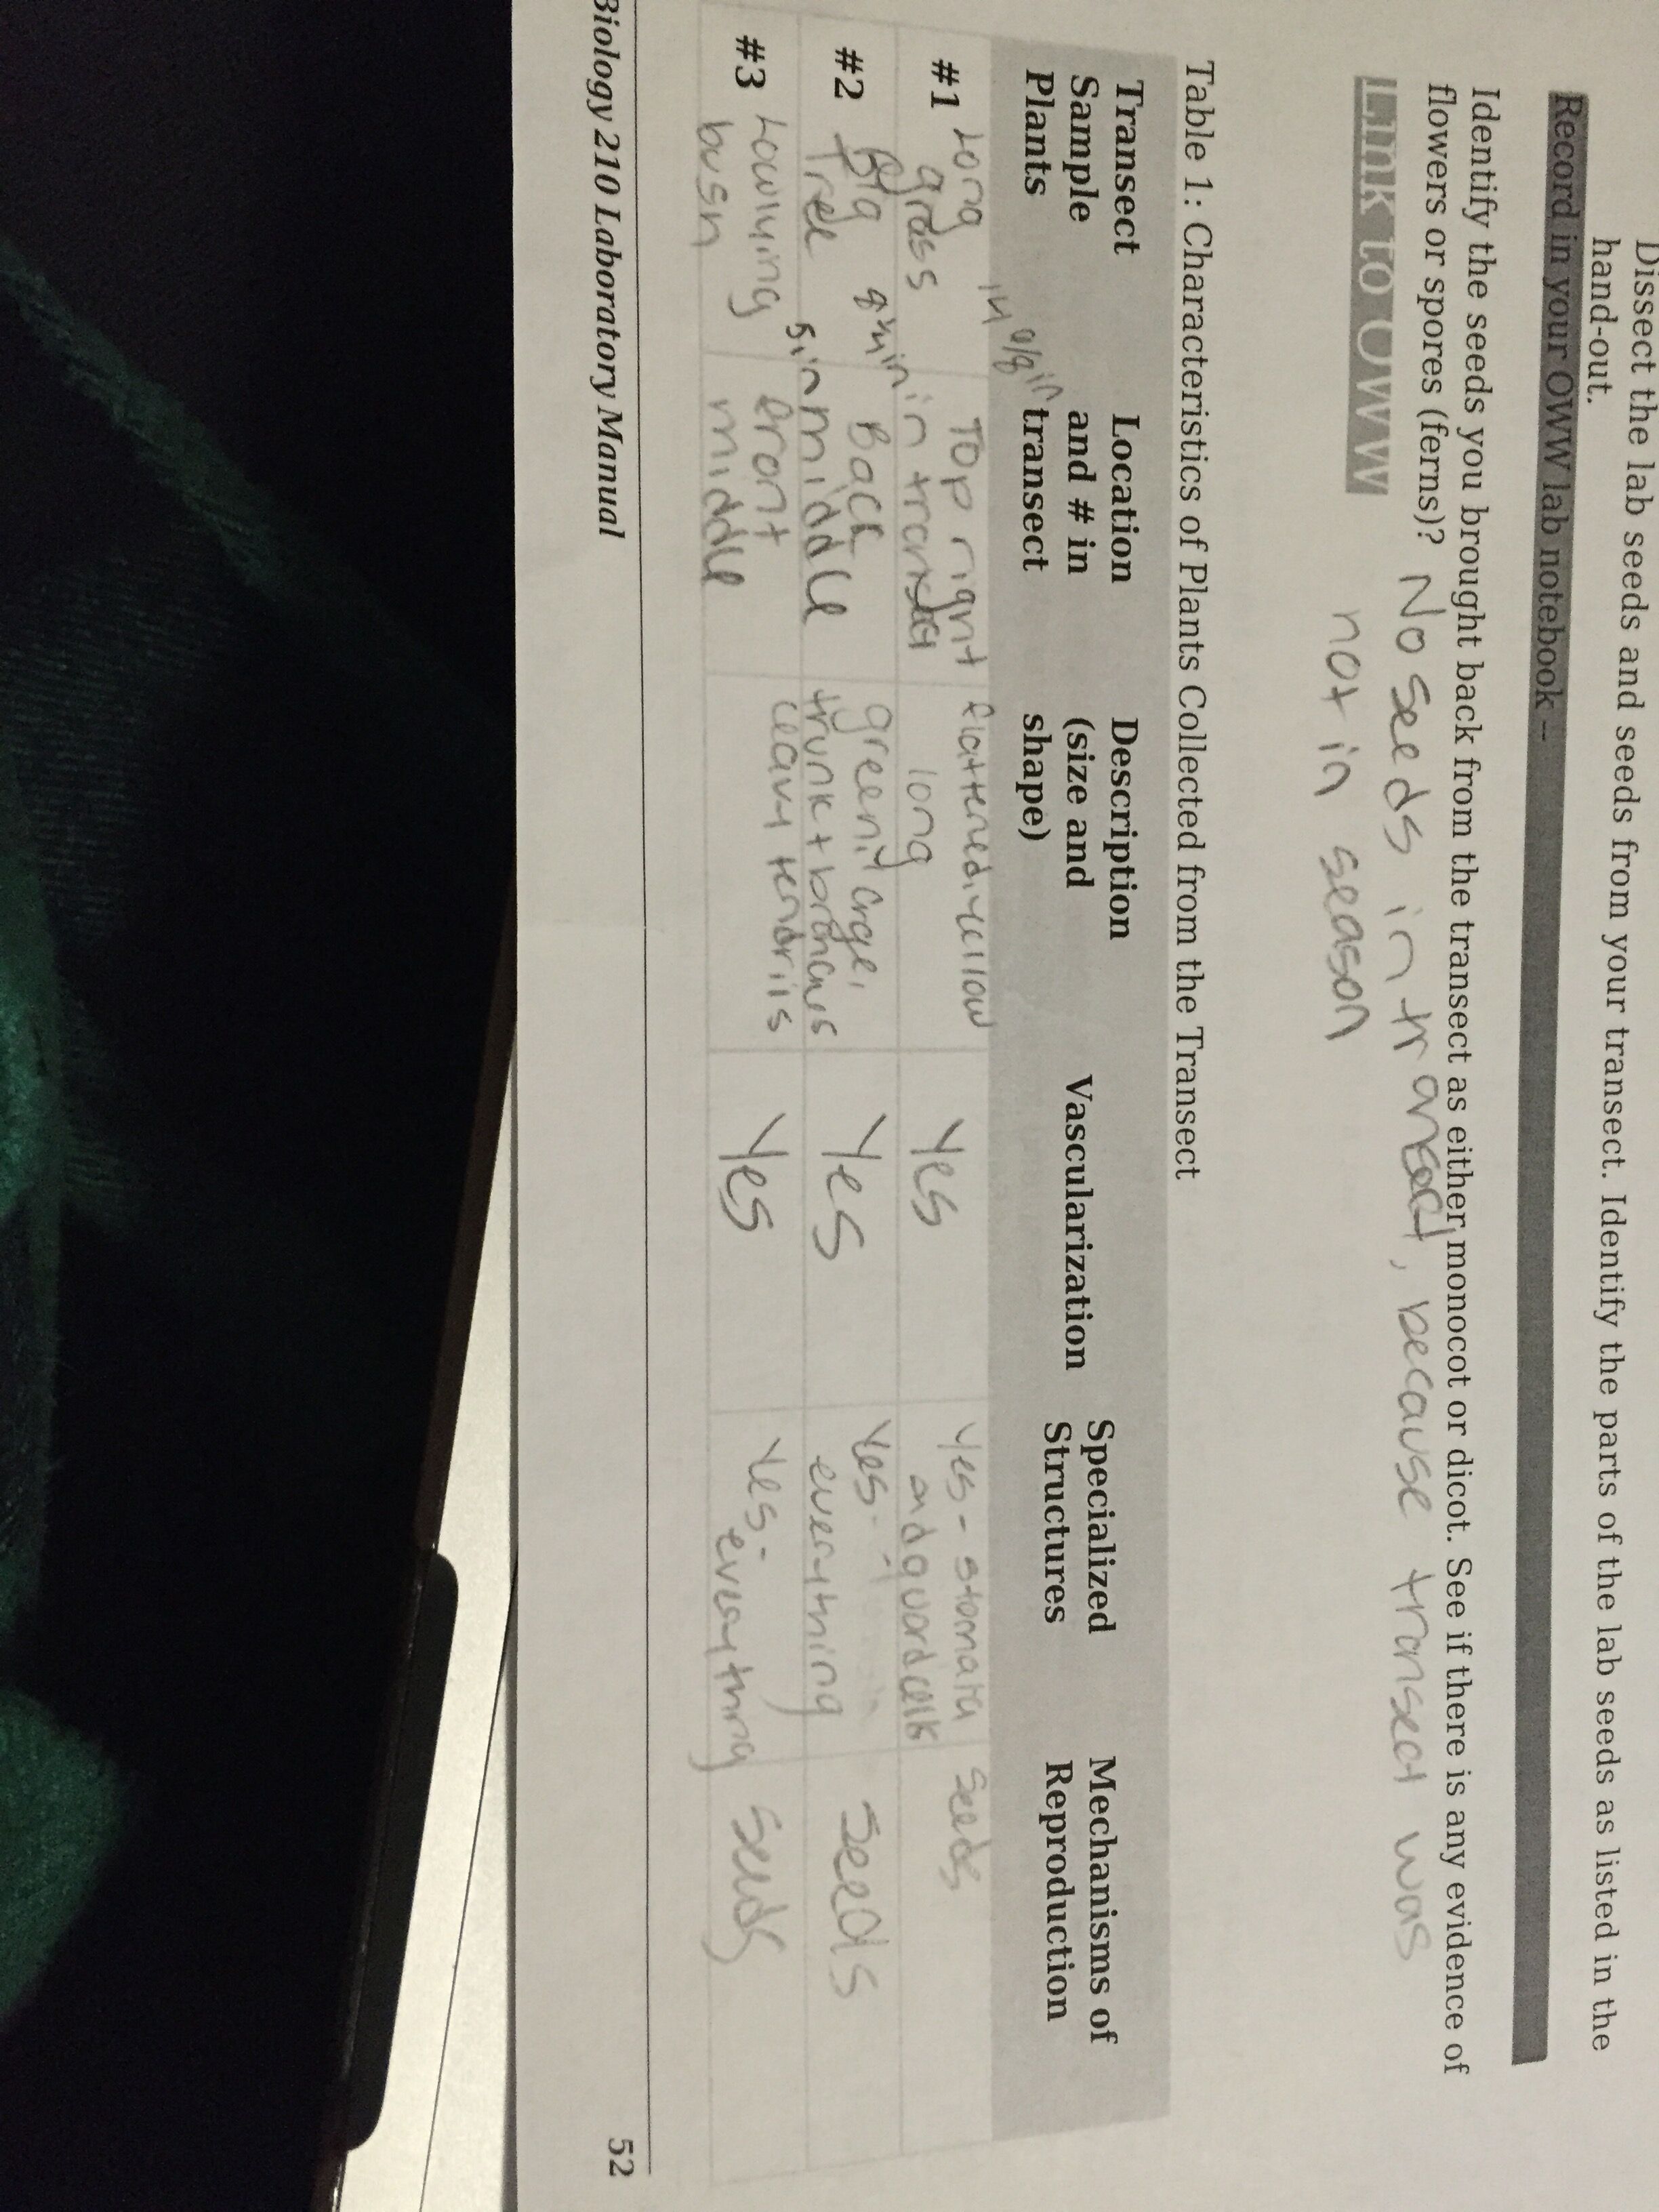 Dissect the lab seeds and seeds from your transect. Identify the parts of the lab seeds as listed in the
hand-out.
Record in your OWW lab notebook –
Identify the seeds you brought back from the transect as either monocot or dicot. See if there is any evidence of
flowers or spores (ferns)? No seeds in transect, because transect was
Link to OWW not in season
Table 1: Characteristics of Plants Collected from the Transect
Transect Sample Plants
Location and # in transect
Description (size and shape)
Vascularization
Specialized Structures
Mechanisms of Reproduction
#1 Long grass
Top right in transect
flattened, yellow long
Yes
Yes - stomata and guard cells
Seeds
#2 Big Tree
Back middle
trunk + branches
Yes
Yes - everything
Seeds
#3 Lowlying bush
5in
front middle
leavy tendrils
Yes
Yes - everything
Seeds
Biology 210 Laboratory Manual
52